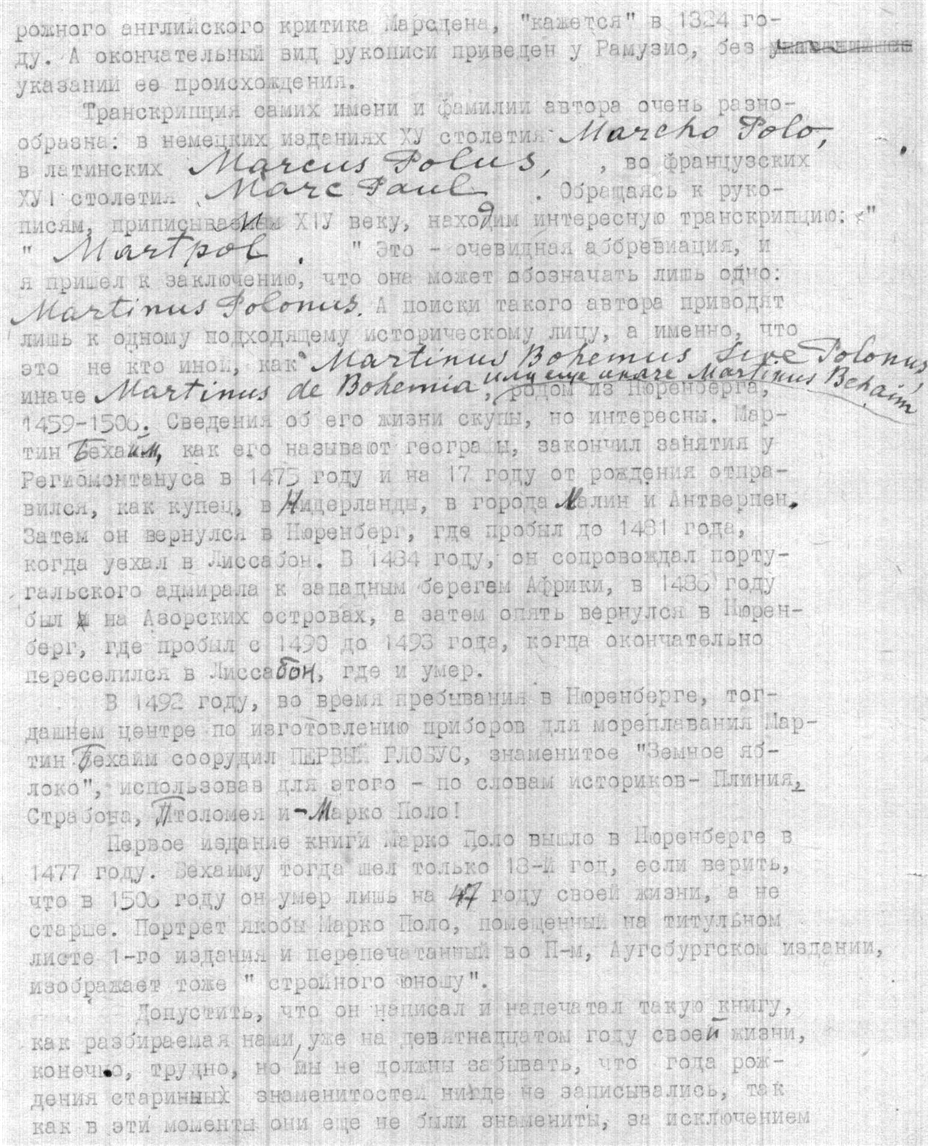 рожного английского критика Марсдена, "кажется" в 1324 го-
ду. А окончательный вид рукописи приведен у Рамузио, без
указаний ее происхождения.
Транскрипция самих имени и фамилии автора очень разно-
образна: в немецких изданиях ХУ столетия Marcho Polo,
в латинских Marcus Polus, , во французских
ХУI столетия Marc Paul . Обращаясь к руко-
писям, приписываемым ХIУ веку, находим интересную транскрипцию: "
" Martpol . " Это - очевидная аббревиация, и
я пришел к заключению, что она может обозначать лишь одно:
Martinus Polonus. А поиски такого автора приводят
лишь к одному подходящему историческому лицу, а именно, что
это не кто иной, как Martinus Bohemus sive Polonus,
иначе Martinus de Bohemia, или еще иначе Martinus Behaim, родом из Нюренберга,
1459-1506. Сведения об его жизни скупы, но интересны. Мар-
тин Бехайм, как его называют географы, закончил занятия у
Региомонтануса в 1475 году и на 17 году от рождения отпра-
вился, как купец, в Нидерланды, в города Малин и Антверпен.
Затем он вернулся в Нюренберг, где пробыл до 1481 года,
когда уехал в Лиссабон. В 1484 году, он сопровождал порту-
гальского адмирала к западным берегам Африки, в 1486 году
был на Азорских островах, а затем опять вернулся в Нюрен-
берг, где пробыл с 1490 до 1493 года, когда окончательно
переселился в Лиссабон, где и умер.
В 1492 году, во время пребывания в Нюренберге, тог-
дашнем центре по изготовлению приборов для мореплавания Мар-
тин Бехайм соорудил ПЕРВЫЙ ГЛОБУС, знаменитое "Земное яб-
локо", использовав для этого - по словам историков- Плиния,
Страбона, Птоломея и-Марко Поло!
Первое издание книги Марко Поло вышло в Нюренберге в
1477 году. Бехайму тогда шел только 18-й год, если верить,
что в 1506 году он умер лишь на 47 году своей жизни, а не
старше. Портрет якобы Марко Поло, помещенный на титульном
листе 1-го издания и перепечатанный во П-м, Аугсбургском издании,
изображает тоже " стройного юношу".
Допустить, что он написал и напечатал такую книгу,
как разбираемая нами, уже на девятнадцатом году своей жизни,
конечно, трудно, но мы не должны забывать, что года рож-
дения старинных знаменитостей нигде не записывались, так
как в эти моменты они еще не были знамениты, за исключением